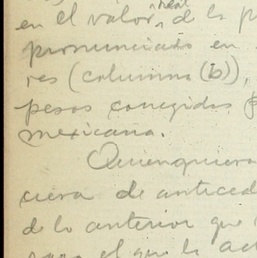 en el valor real de la p
pronunciado en
res (columna (b)),
pesos corregidos p
mexicana.
Quienquiera
ciera de anteced
de lo anterior que
para el que le act